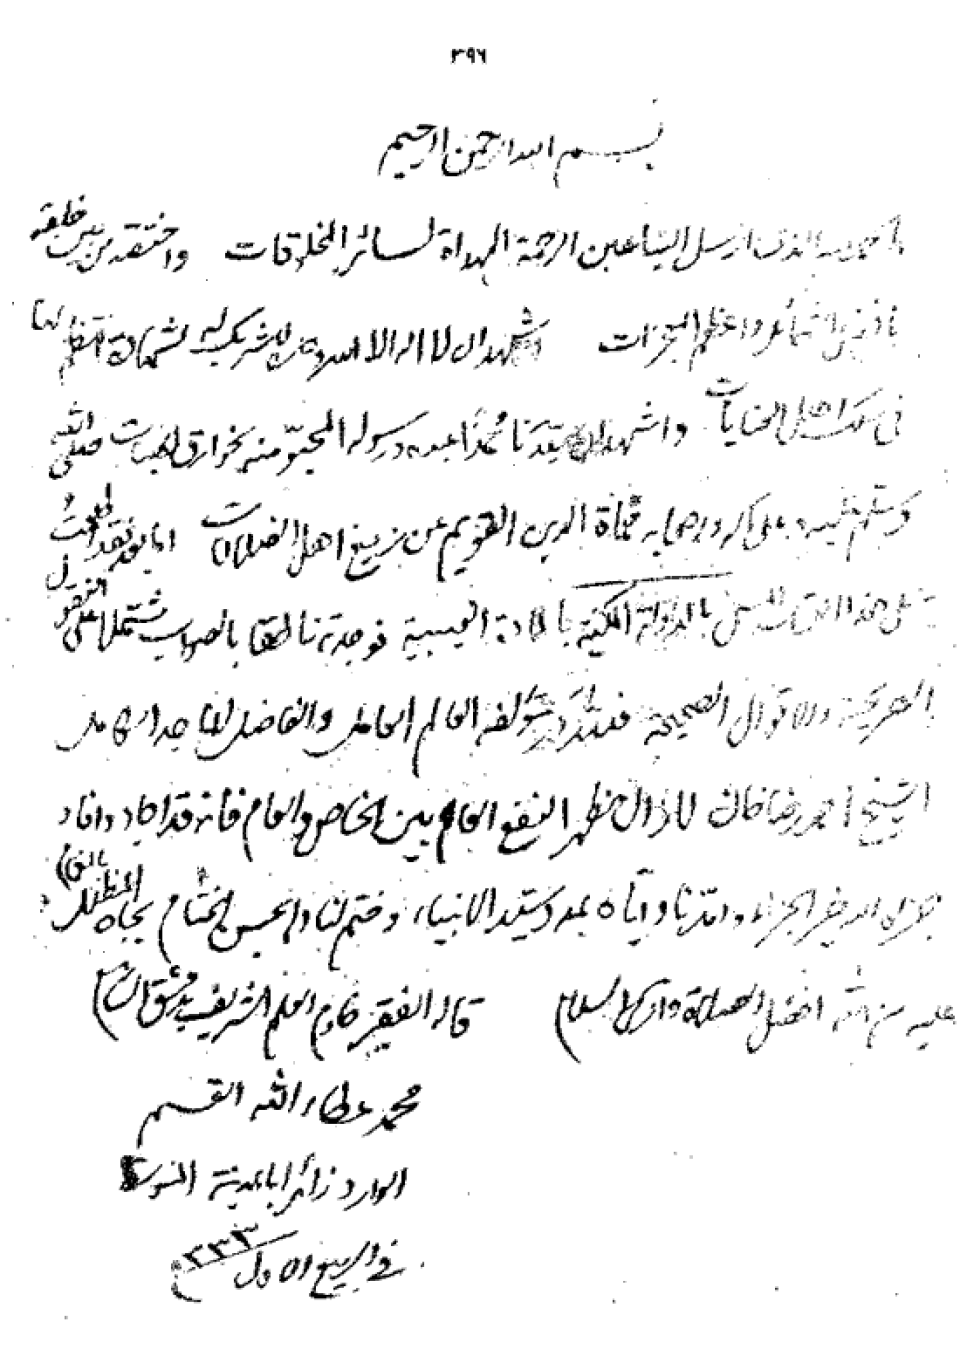 ٣٩٦
بسم الله الرحمن الرحيم
الحمد لله الذي ارسل الينا عين الرحمة المهداة لسائر المخلوقات واختصه من بين خلقه
واعظم المعجزات اشهد ان لا اله الا الله وحده لا شريك له لها
في واشهد ان سيدنا محمدا عبده ورسوله من بخوارق صلى الله
وسلم عليه وعلى اله وصحابه حماة الدين القويم عن زيغ اهل الضلالات اما بعد فقد طالعت
هذا المسمى بالدولة المكية بالمادة الغيبية فوجدته ناطقا بالصواب مشتملا على النقول
الصريحة والاقوال الصحيحة فلله در مؤلفه العالم العامل والفاضل الماجد الكامل
الشيخ احمد رضا خان لا زال مظهر النفع العام بين الخاص والعام فانه قد اجاد وافاد
جزاه الله خير الجزاء وامدنا واياه بمدد سيد الانبياء وختم لنا وله بحسن الختام بجاه المظلل بالغمام
عليه من الله افضل الصلاة وازكى السلام قاله الفقير خادم العلم الشريف بدمشق الشام
محمد عطاء الله القسم
الوارد زائرا بالمدينة المنورة
في ربيع الاول